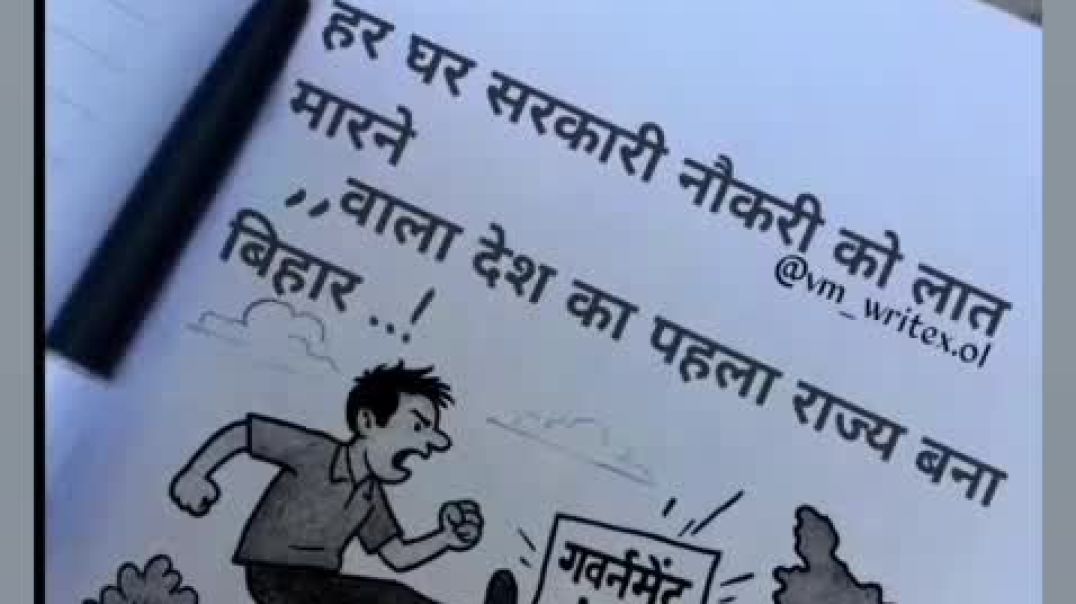 हर घर सरकारी नौकरी को लात
मारने
,,वाला देश का पहला राज्य बना
बिहार ..!
@vm_writex.ol
गवर्नमेंट